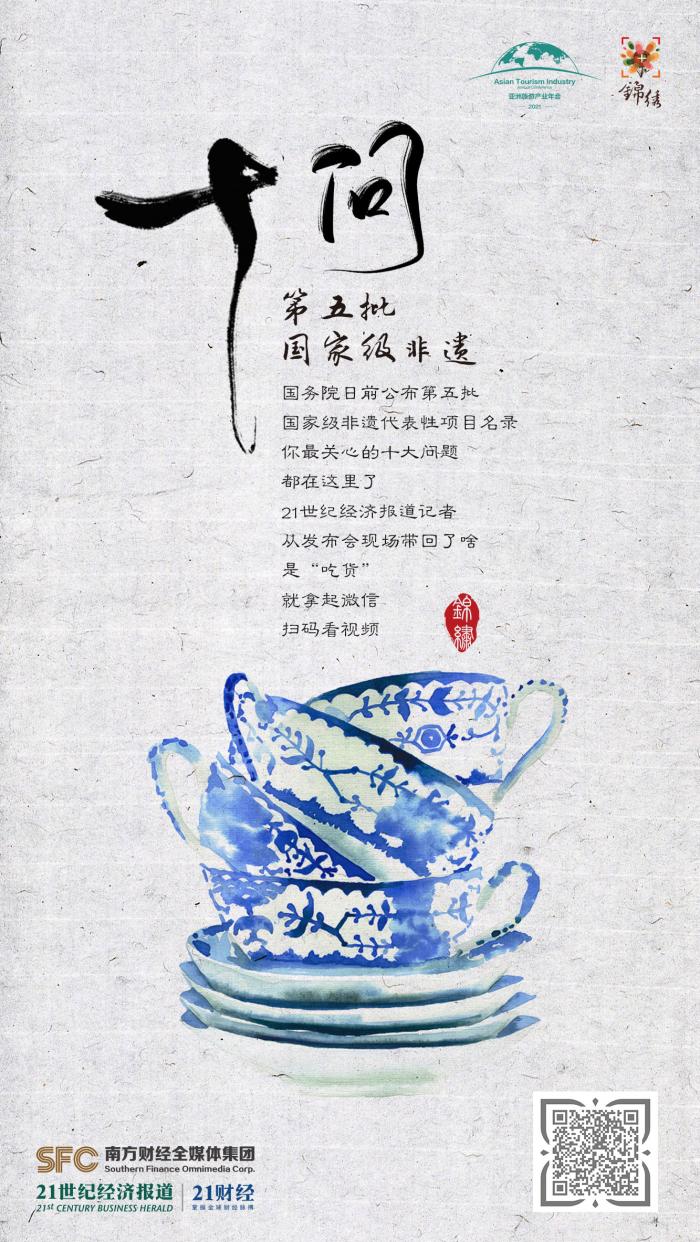 Asian Tourism Industry
ANNUAL CONFERENCE
亚洲旅游产业年会
2021
錦绣
十问
第五批
国家级非遗
国务院日前公布第五批
国家级非遗代表性项目名录
你最关心的十大问题
都在这里了
21世纪经济报道记者
从发布会现场带回了啥
是“吃货”
就拿起微信
扫码看视频
錦繡
SFC 南方财经全媒体集团
Southern Finance Omnimedia Corp.
21世纪经济报道
21st CENTURY BUSINESS HERALD
21财经
掌握全球财经脉搏